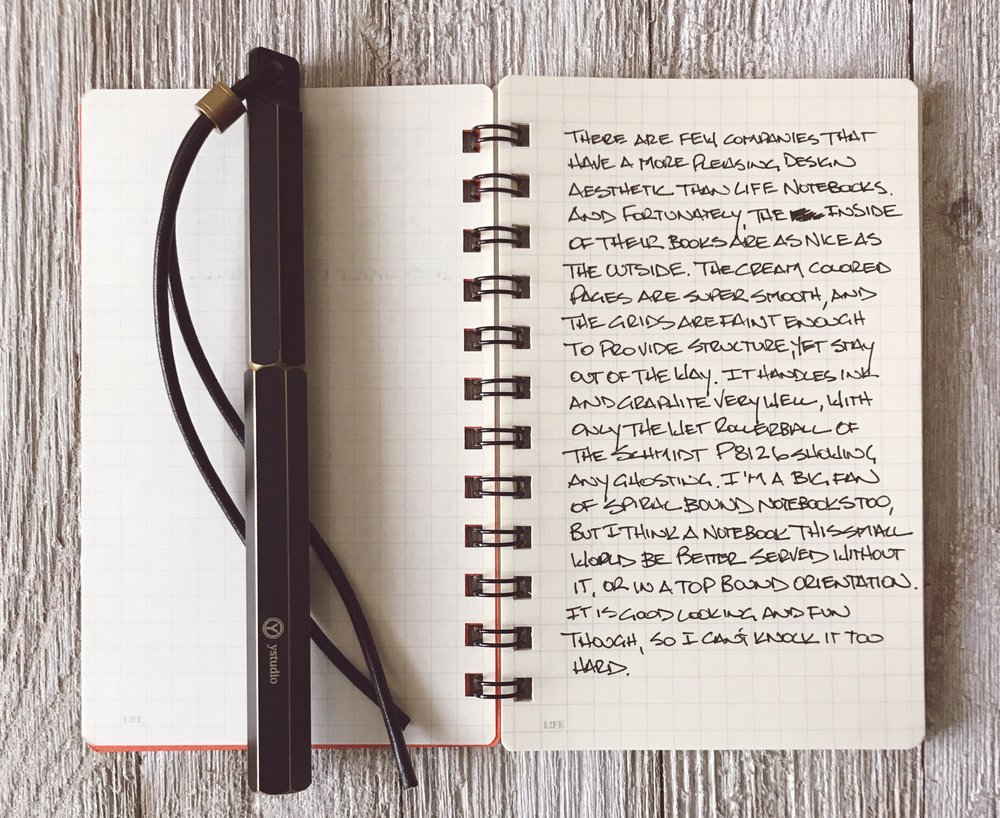 THERE ARE FEW COMPANIES THAT
HAVE A MORE PLEASING DESIGN
AESTHETIC THAN LIFE NOTEBOOKS.
AND FORTUNATELY, THE INSIDE
OF THEIR BOOKS ARE AS NICE AS
THE OUTSIDE. THE CREAM COLORED
PAGES ARE SUPER SMOOTH, AND
THE GRIDS ARE FAINT ENOUGH
TO PROVIDE STRUCTURE, YET STAY
OUT OF THE WAY. IT HANDLES INK
AND GRAPHITE VERY WELL, WITH
ONLY THE WET ROLLERBALL OF
THE SCHMIDT P8126 SHOWING
ANY GHOSTING. I'M A BIG FAN
OF SPIRAL BOUND NOTEBOOKS TOO,
BUT I THINK A NOTEBOOK THIS SMALL
WORLD BE BETTER SERVED WITHOUT
IT, OR IN A TOP BOUND ORIENTATION.
IT IS GOOD LOOKING AND FUN
THOUGH, SO I CAN'T KNOCK IT TOO
HARD.
ystudio
L!FE
L!FE